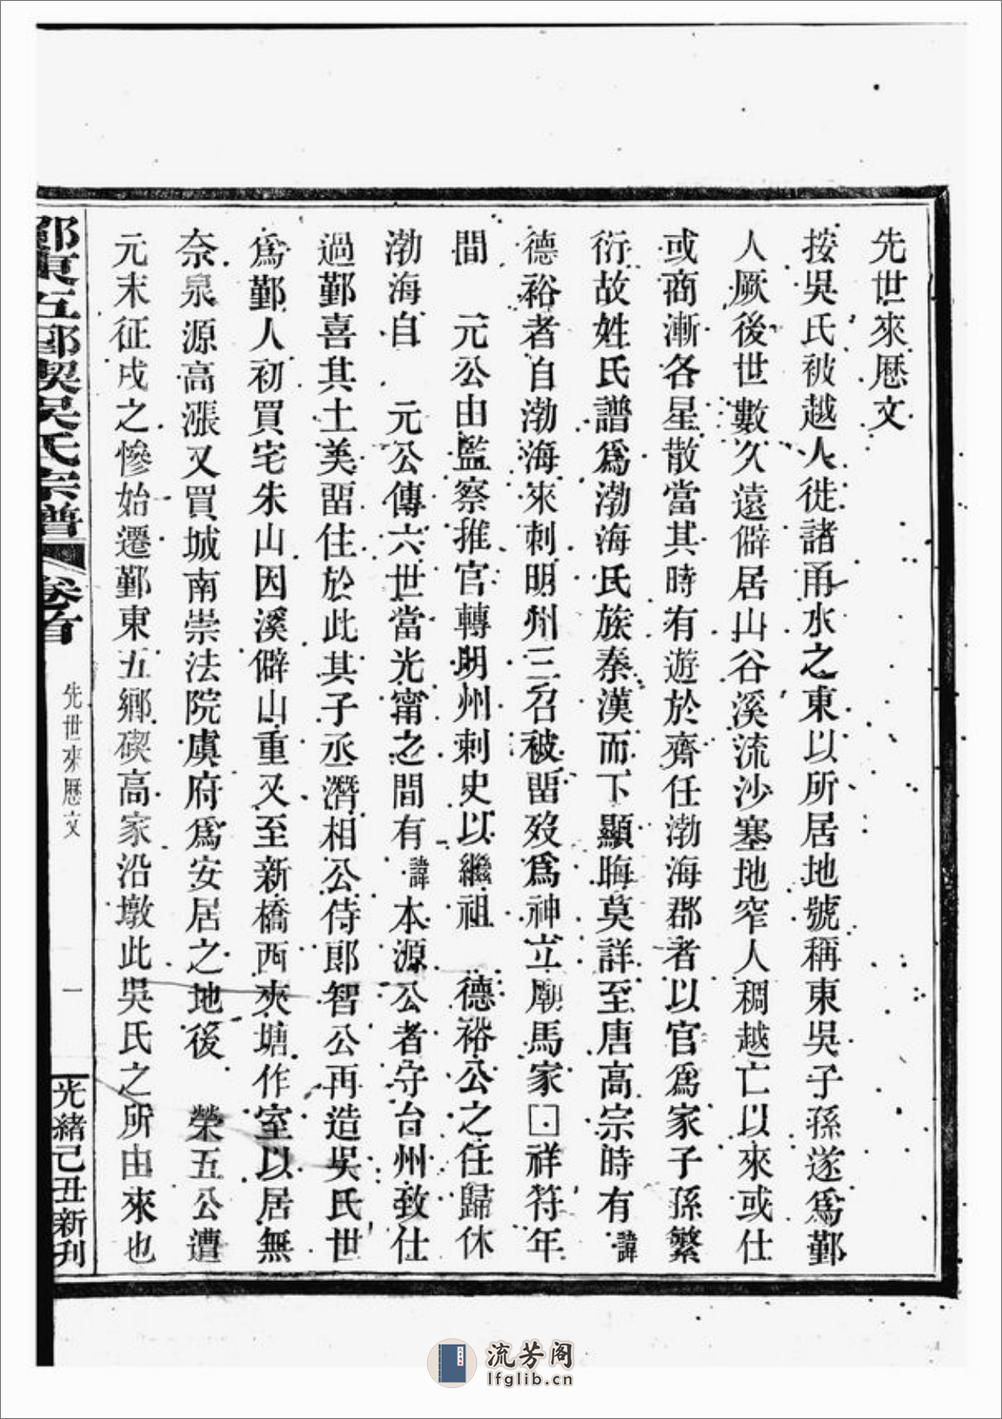 先世來厯文
按吳氏被越人徙諸甬水之東以所居地號稱東吳子孫遂爲鄞
人厥後世數久遠僻居山谷溪流沙塞地窄人稠越亡以來或仕
或商漸各星散當其時有遊於齊任渤海郡者以官爲家子孫繁
衍故姓氏譜爲渤海氏族秦漢而下顯晦莫詳至唐高宗時有諱
德裕者自渤海來刺明州三召被畱歿爲神立廟馬家□祥符年
間　元公由監察推官轉明州刺史以繼祖　德裕公之任歸休
渤海自　元公傳六世當光甯之間有諱本源公者守台州致仕
過鄞喜其土美畱住於此其子丞濳相公侍郎智公再造吳氏世
爲鄞人初買宅朱山因溪僻山重又至新橋西夾塘作室以居無
奈泉源高漲又買城南崇法院虞府爲安居之地後　榮五公遭
元末征戍之慘始遷鄞東五鄉碶高家沿墩此吳氏之所由來也
鄞東五鄉碶吳氏宗譜　卷首　先世來厯文　一　光緒己丑新刊
流芳阁
lfglib.cn